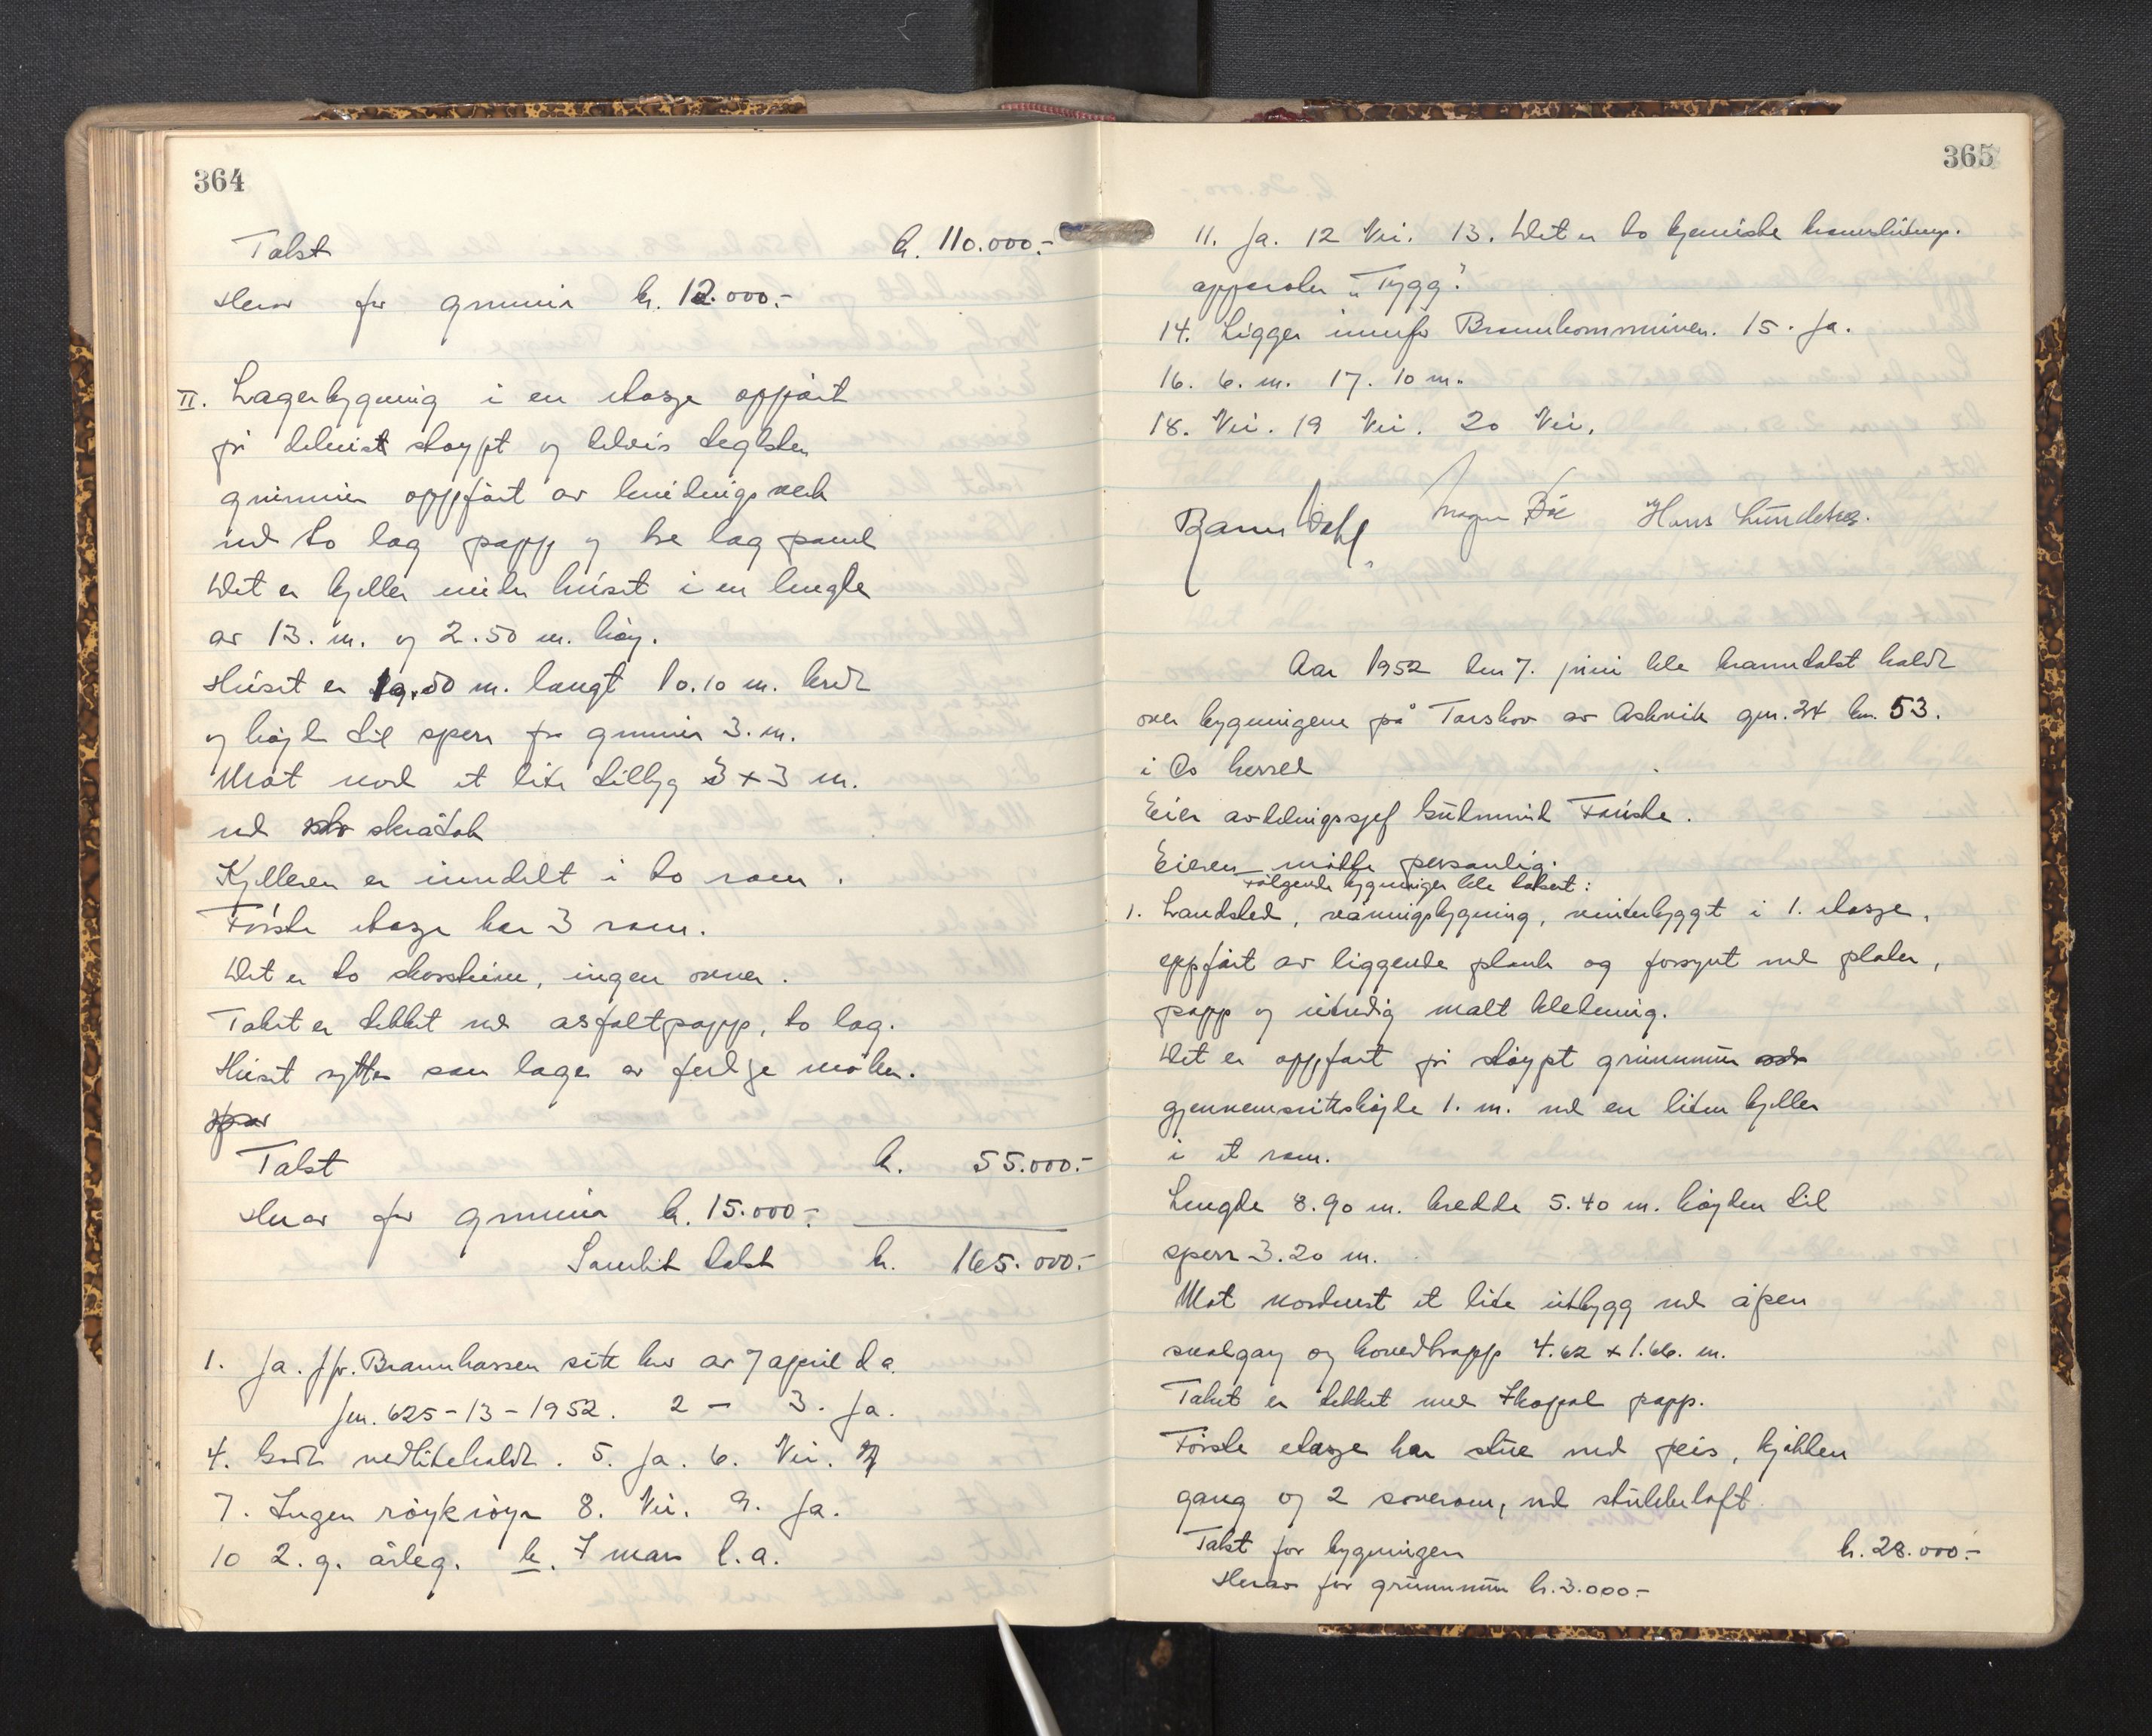 364
Takst kr. 110.000.-
Herav for grunnmur kr. 12.000.-
II. Lagerbygning i en etasje oppført
på delvist støypt og delvis teglsten
grunnmur oppført av bindingsverk
med to lag papp og tre lag panel
Det er kjeller under huset i en lengde
av 13. m. og 2.50 m. høy.
Huset er 19.50 m. langt 10.10 m. bredt
og højde til sperr fra grunnmur 3. m.
Mot nord et lite tilbygg 3 x 3 m.
med skråtak
Kjelleren er inndelt i to rom.
Første etasje har 3 rom.
Det er to skorsteine, ingen ovner.
Taket er dekket med asfaltpapp, to lag.
Huset nyttes som lager av ferdige møbler.
Takst kr. 55.000.-
Herav for grunnmur kr. 15.000.-
Samlet takst kr. 165.000.-
1. Ja. Jfr. Brannkassen sitt brev av 7 april d.a.
Jnr. 625-13-1952. 2 - 3. Ja.
4. Godt vedlikeholdt. 5. Ja. 6. Nei.
7. Ingen røykrøyr 8. Nei. 9. Ja.
10 2. g. årleg. 7 mars d.a.
365
11. Ja. 12 Nei. 13. Det er to kjemiske brannslukn.
apparater "Trygg".
14. Ligger innafor Brannkommunen. 15. Ja.
16. 6. m. 17. 10 m.
18. Nei. 19 Nei. 20 Nei.
Bjarne Dahl. Magnus Bøe Hans Lundetræ.
Aar 1952 den 7. juni ble branntakst holdt
over bygningene på Torskov av Askvik gnr. 24 bnr. 53.
i Os herred
Eier avdelingssjef Gudmund Fauske.
Eieren møtte personlig.
Følgende bygninger ble taksert:
1. Landsted, våningsbygning, vinterbygget i 1. etasje,
oppført av liggende plank og forsynt med plater,
papp og utvendig malt kledning.
Det er oppført på støypt grunnmur
gjennemsnittshøyde 1. m. med en liten kjeller
i et rom.
Lengde 8.90 m. bredde 5.40 m. højden til
sperr 3.20 m.
Mot nordvest et lite utbygg med åpen
svalgang og hovedtrapp 4.62 x 1.66. m.
Taket er dekket med papp.
Første etasje har stue med peis, kjøkken
gang og 2 soverom, med stubbeloft.
Takst for bygningen kr. 28.000.-
Herav for grunnmur kr. 3.000.-